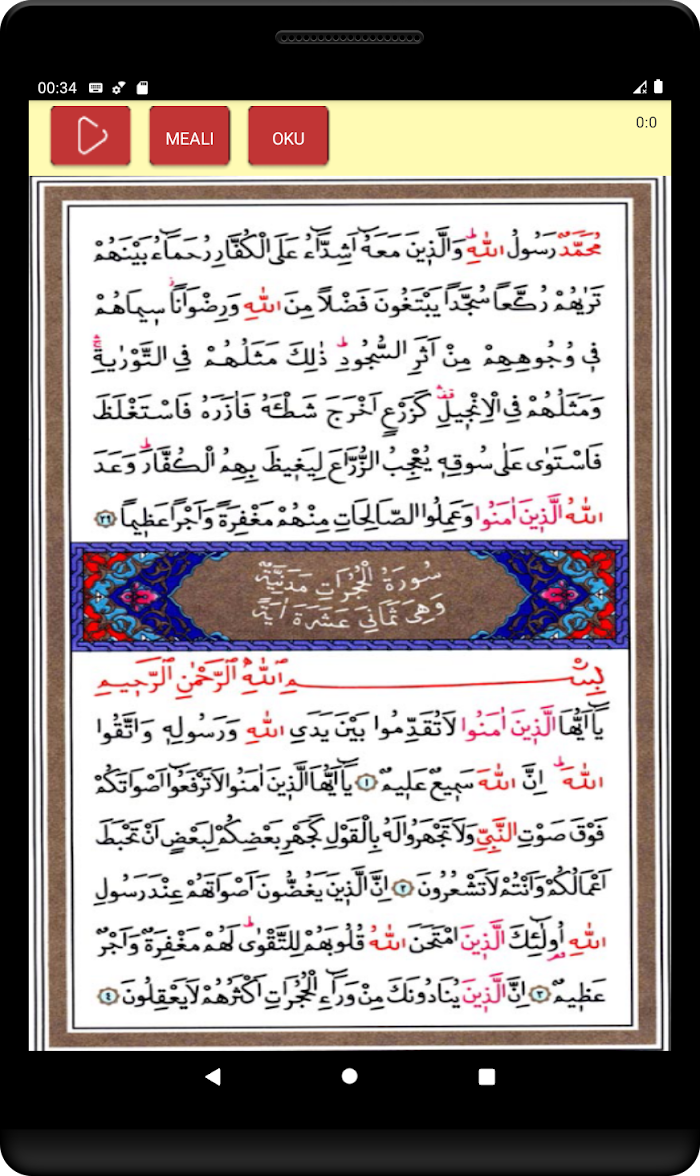 00:34
MEALI
OKU
0:0
مُحَمَّدٌ رَسُولُ اللّٰهِۜ وَالَّذ۪ينَ مَعَهُٓ اَشِدَّٓاءُ عَلَى الْكُفَّارِ رُحَمَٓاءُ بَيْنَهُمْ
تَرٰيهُمْ رُكَّعًا سُجَّدًا يَبْتَغُونَ فَضْلًا مِنَ اللّٰهِ وَرِضْوَانًاۘ س۪يمَاهُمْ
ف۪ي وُجُوهِهِمْ مِنْ اَثَرِ السُّجُودِۜ ذٰلِكَ مَثَلُهُمْ فِي التَّوْرٰيةِۚۛ
وَمَثَلُهُمْ فِي الْاِنْج۪يلِ۠ۛ كَزَرْعٍ اَخْرَجَ شَطْـَٔهُ فَاٰزَرَهُ فَاسْتَغْلَظَ
فَاسْتَوٰى عَلٰى سُوقِه۪ يُعْجِبُ الزُّرَّاعَ لِيَغ۪يظَ بِهِمُ الْكُفَّارَۜ وَعَدَ
اللّٰهُ الَّذ۪ينَ اٰمَنُوا وَعَمِلُوا الصَّالِحَاتِ مِنْهُمْ مَغْفِرَةً وَاَجْرًا عَظ۪يمًا ﴿٢٩﴾
سُورَةُ الْحُجُرَاتِ مَدَنِيَّةٌ
وَهِيَ ثَمَانِيَ عَشَرَةَ اٰيَةً
بِسْــــــمِ اللّٰهِ الرَّحْمٰنِ الرَّح۪يمِ
يَٓا اَيُّهَا الَّذ۪ينَ اٰمَنُوا لَا تُقَدِّمُوا بَيْنَ يَدَيِ اللّٰهِ وَرَسُولِه۪ وَاتَّقُوا
اللّٰهَۜ اِنَّ اللّٰهَ سَم۪يعٌ عَل۪يمٌ ﴿١﴾ يَٓا اَيُّهَا الَّذ۪ينَ اٰمَنُوا لَا تَرْفَعُٓوا اَصْوَاتَكُمْ
فَوْقَ صَوْتِ النَّبِيِّ وَلَا تَجْهَرُوا لَهُ بِالْقَوْلِ كَجَهْرِ بَعْضِكُمْ لِبَعْضٍ اَنْ تَحْبَطَ
اَعْمَالُكُمْ وَاَنْتُمْ لَا تَشْعُرُونَ ﴿٢﴾ اِنَّ الَّذ۪ينَ يَغُضُّونَ اَصْوَاتَهُمْ عِنْدَ رَسُولِ
اللّٰهِ اُو۬لٰٓئِكَ الَّذ۪ينَ امْتَحَنَ اللّٰهُ قُلُوبَهُمْ لِلتَّقْوٰىۜ لَهُمْ مَغْفِرَةٌ وَاَجْرٌ
عَظ۪يمٌ ﴿٣﴾ اِنَّ الَّذ۪ينَ يُنَادُونَكَ مِنْ وَرَٓاءِ الْحُجُرَاتِ اَكْثَرُهُمْ لَا يَعْقِلُونَ ﴿٤﴾